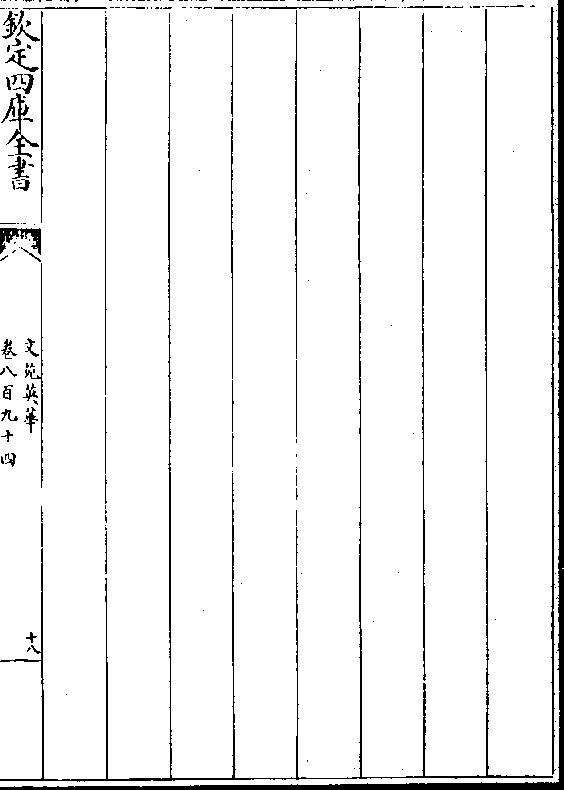 欽定四庫全書
文苑英華
卷八百九十四
十八